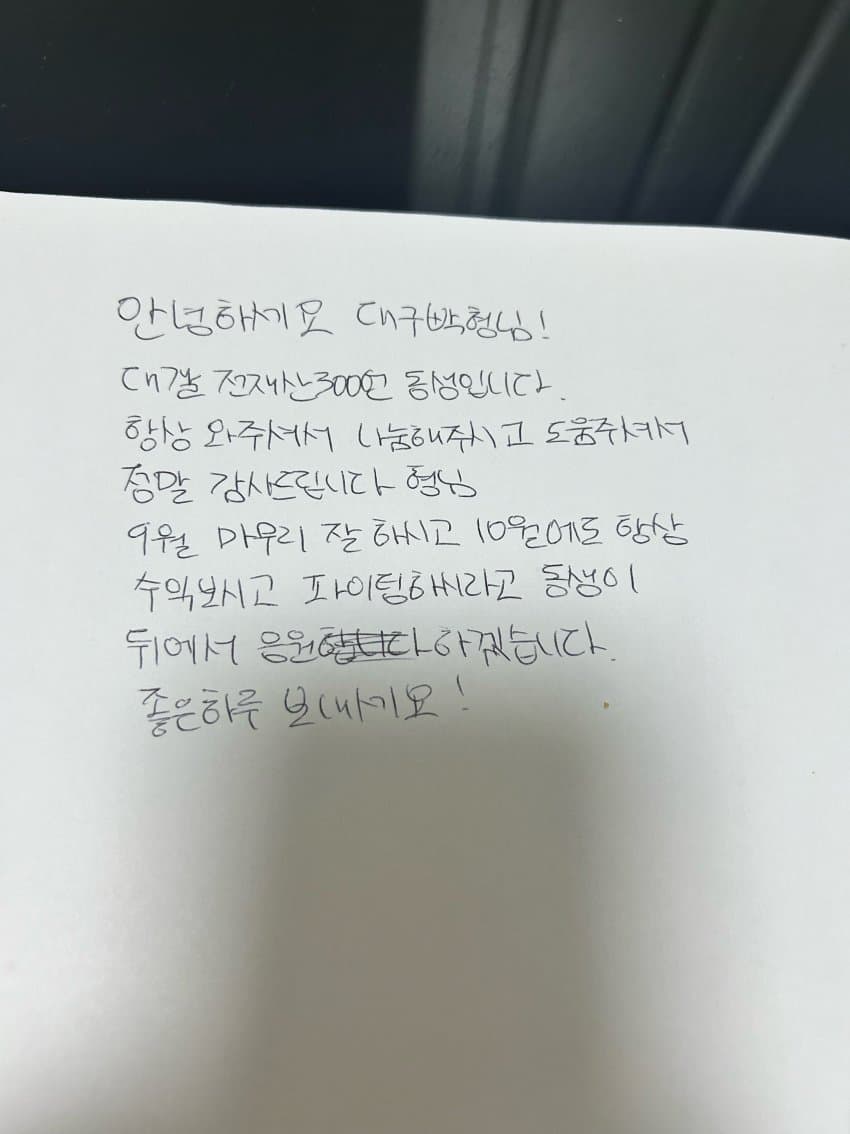 안녕하세요 대구박형님!
대갤 전재산300인 동생입니다.
항상 와주셔서 나눔해주시고 도움주셔서
정말 감사드립니다 형님
9월 마무리 잘 하시고 10월에도 항상
수익보시고 파이팅하시라고 동생이
뒤에서 응원하겠습니다.
좋은하루 보내세요!